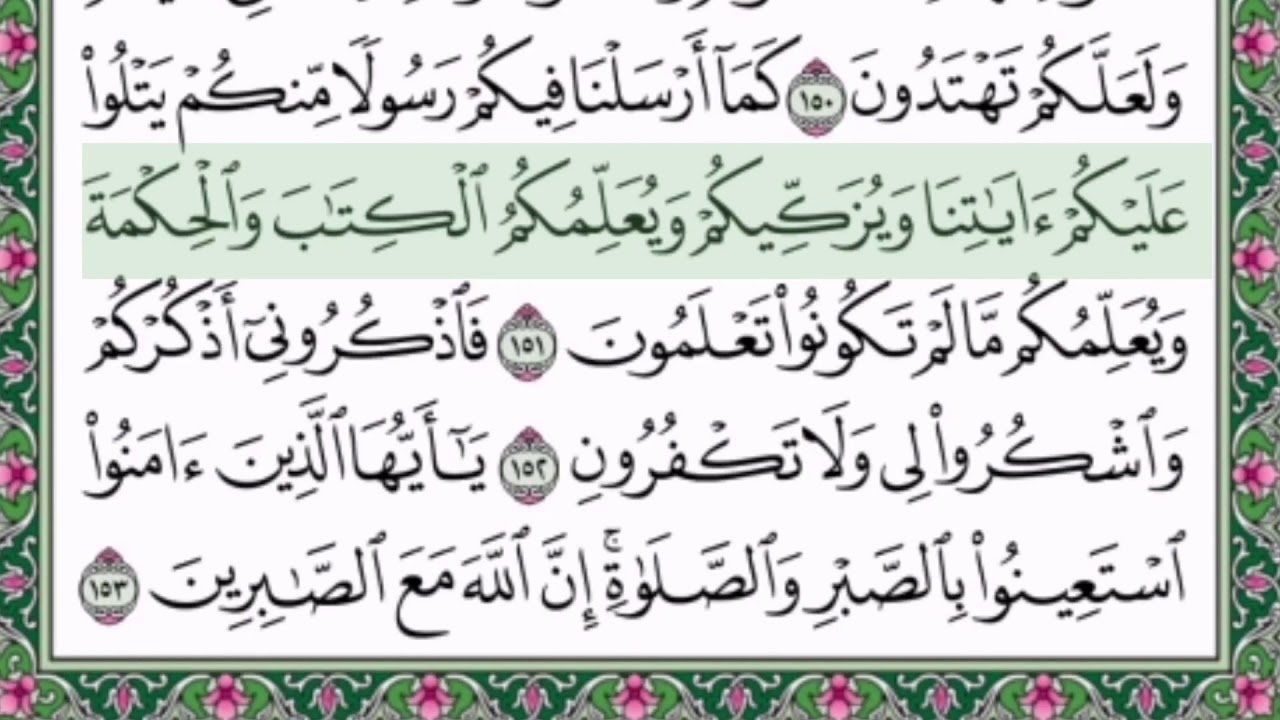 وَلَعَلَّكُمْ تَهْتَدُونَ ١٥٠ كَمَآ أَرْسَلْنَا فِيكُمْ رَسُولًا مِّنكُمْ يَتْلُوا۟
عَلَيْكُمْ ءَايَـٰتِنَا وَيُزَكِّيكُمْ وَيُعَلِّمُكُمُ ٱلْكِتَـٰبَ وَٱلْحِكْمَةَ
وَيُعَلِّمُكُم مَّا لَمْ تَكُونُوا۟ تَعْلَمُونَ ١٥١ فَٱذْكُرُونِىٓ أَذْكُرْكُمْ
وَٱشْكُرُوا۟ لِى وَلَا تَكْفُرُونِ ١٥٢ يَـٰٓأَيُّهَا ٱلَّذِينَ ءَامَنُوا۟
ٱسْتَعِينُوا۟ بِٱلصَّبْرِ وَٱلصَّلَوٰةِ ۚ إِنَّ ٱللَّهَ مَعَ ٱلصَّـٰبِرِينَ ١٥٣